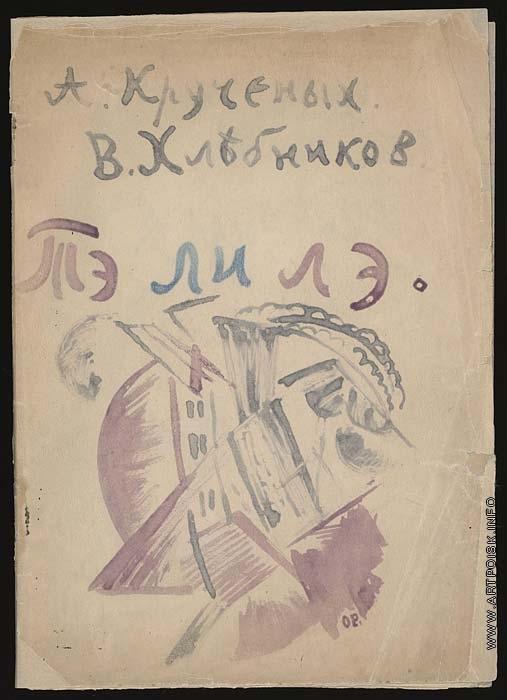 А. Крученых.
В. Хлѣбников
ТЭ ЛИ ЛЭ.
ОР.
WWW.ARTPOISK.INFO